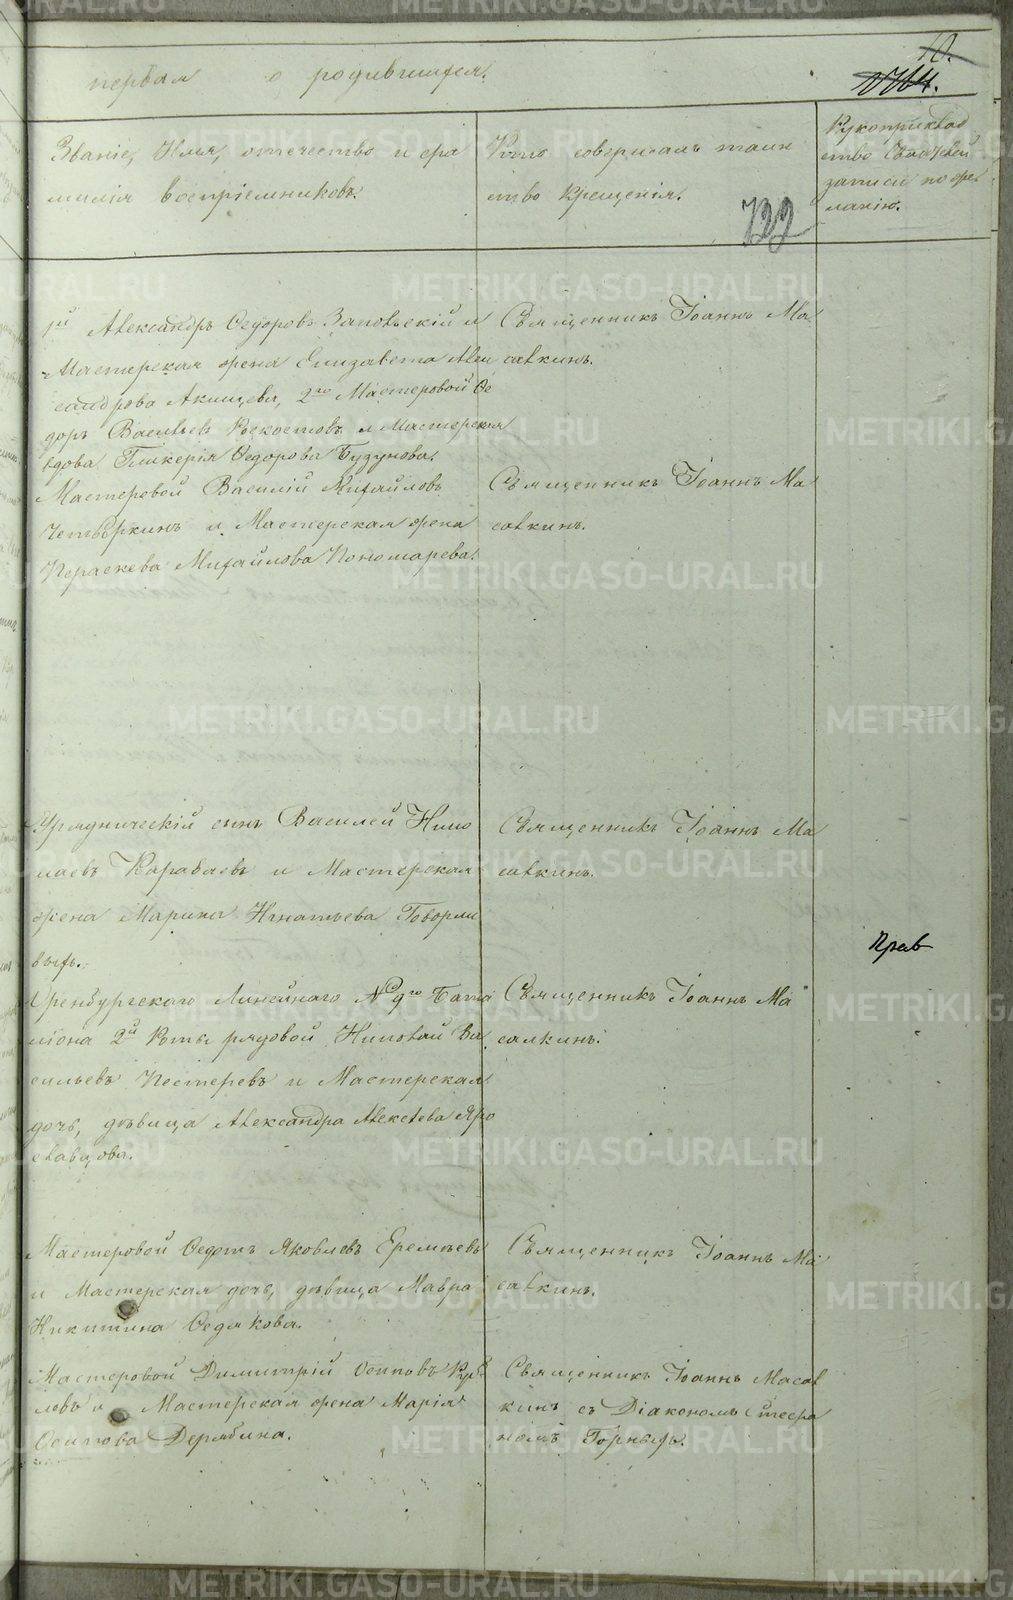 первая о родившихся.
10.
Званіе, Имя, отчество и фа
милія воспріемниковъ.
Кто совершалъ таин
ство крещенія.
722
Рукоприклад
ство Свидѣтелей
записи по же
ланію.
1й Александръ Ѳедоровъ и
Мастерская жена Елизавета Алек
сандрова Акищева, 2го Мастеровой Ѳе
доръ Васильевъ и Мастерская
вдова Гликерія Ѳедорова Бузунова.
Священникъ Іоаннъ Ма
салкинъ.
Мастеровой Василій Михайловъ
Четвѣркинъ и Мастерская жена
Параскева Михайлова Пономарева.
Священникъ Іоаннъ Ма
салкинъ.
Урядническій сынъ Василей Нико
лаевъ Караваевъ и Мастерская
жена Марина Игнатьева Говорли
выхъ.
Священникъ Іоаннъ Ма
салкинъ.
Прав
Оренбургскаго Линейнаго № 9го Бата
ліона 2й Роты рядовой Николай Ва
сильевъ Пестеревъ и Мастерская
дочь, дѣвица Александра Алексѣева Яро
славцова.
Священникъ Іоаннъ Ма
салкинъ.
Мастеровой Ѳедотъ Яковлевъ Еремѣевъ
и Мастерская дочь, дѣвица Мавра
Никитина Ѳедякова.
Священникъ Іоаннъ Ма
салкинъ.
Мастеровой Димитрій Осиповъ
ловъ и Мастерская жена Марія
Осипова Дерябина.
Священникъ Іоаннъ Масал
кинъ съ Діакономъ Стефа
номъ Горныхъ.
METRIKI.GASO-URAL.RU